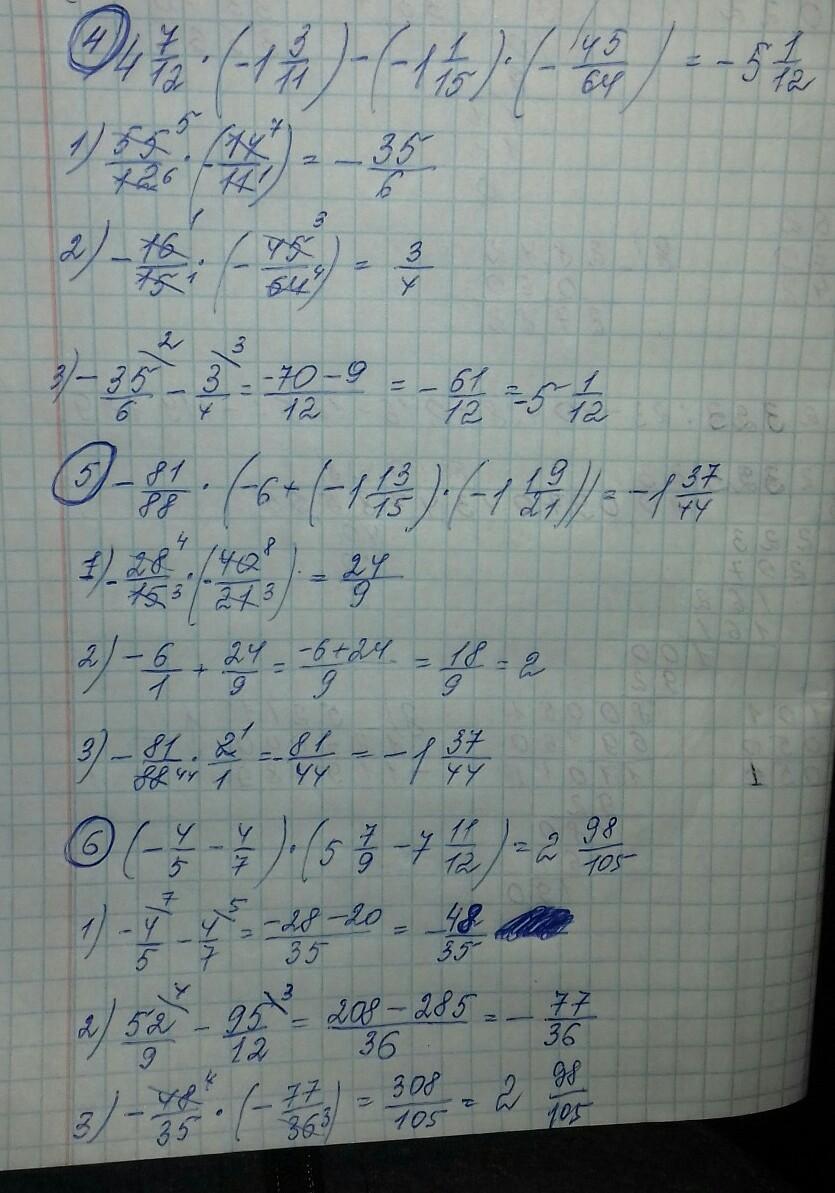 ④ 4 7/12 · (-1 3/11) - (-1 1/15) · (- 45/64) = -5 1/12
1) 55⁵/12₆ · (-14⁷/11₁) = - 35/6
2) - 16¹/15₁ · (- 45³/64₄) = 3/4
3) - 35\²/6 - 3\³/4 = -70-9/12 = - 61/12 = -5 1/12
⑤ - 81/88 · (-6 + (-1 13/15) · (-1 19/21)) = -1 37/44
1) - 28⁴/15₃ · (- 40⁸/21₃) = 24/9
2) - 6/1 + 24/9 = -6+24/9 = 18/9 = 2
3) - 81/88₄₄ · 2¹/1 = - 81/44 = -1 37/44
⑥ (- 4/5 - 4/7) · (5 7/9 - 7 11/12) = 2 98/105
1) - 4\⁷/5 - 4\⁵/7 = -28-20/35 = - 48/35
2) 52\⁴/9 - 95\³/12 = 208-285/36 = - 77/36
3) - 48⁴/35 · (- 77/36₃) = 308/105 = 2 98/105